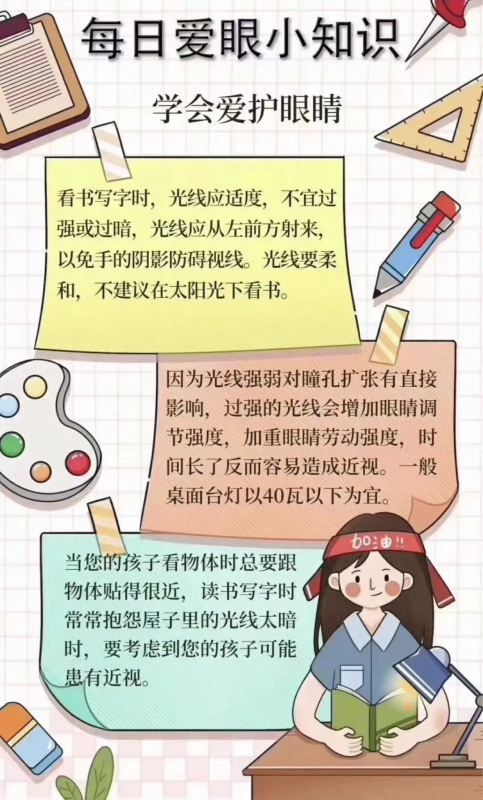 每日爱眼小知识
学会爱护眼睛
看书写字时，光线应适度，不宜过
强或过暗，光线应从左前方射来，
以免手的阴影防碍视线。光线要柔
和，不建议在太阳光下看书。
因为光线强弱对瞳孔扩张有直接
影响，过强的光线会增加眼睛调
节强度，加重眼睛劳动强度，时
间长了反而容易造成近视。一般
桌面台灯以40瓦以下为宜。
当您的孩子看物体时总要跟
物体贴得很近，读书写字时
常常抱怨屋子里的光线太暗
时，要考虑到您的孩子可能
患有近视。
加油!!